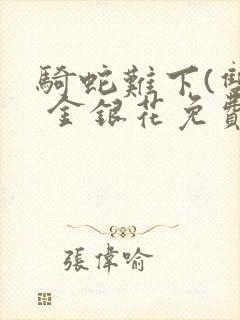 騎蛇難下(雙
金銀花免費
張偉喻